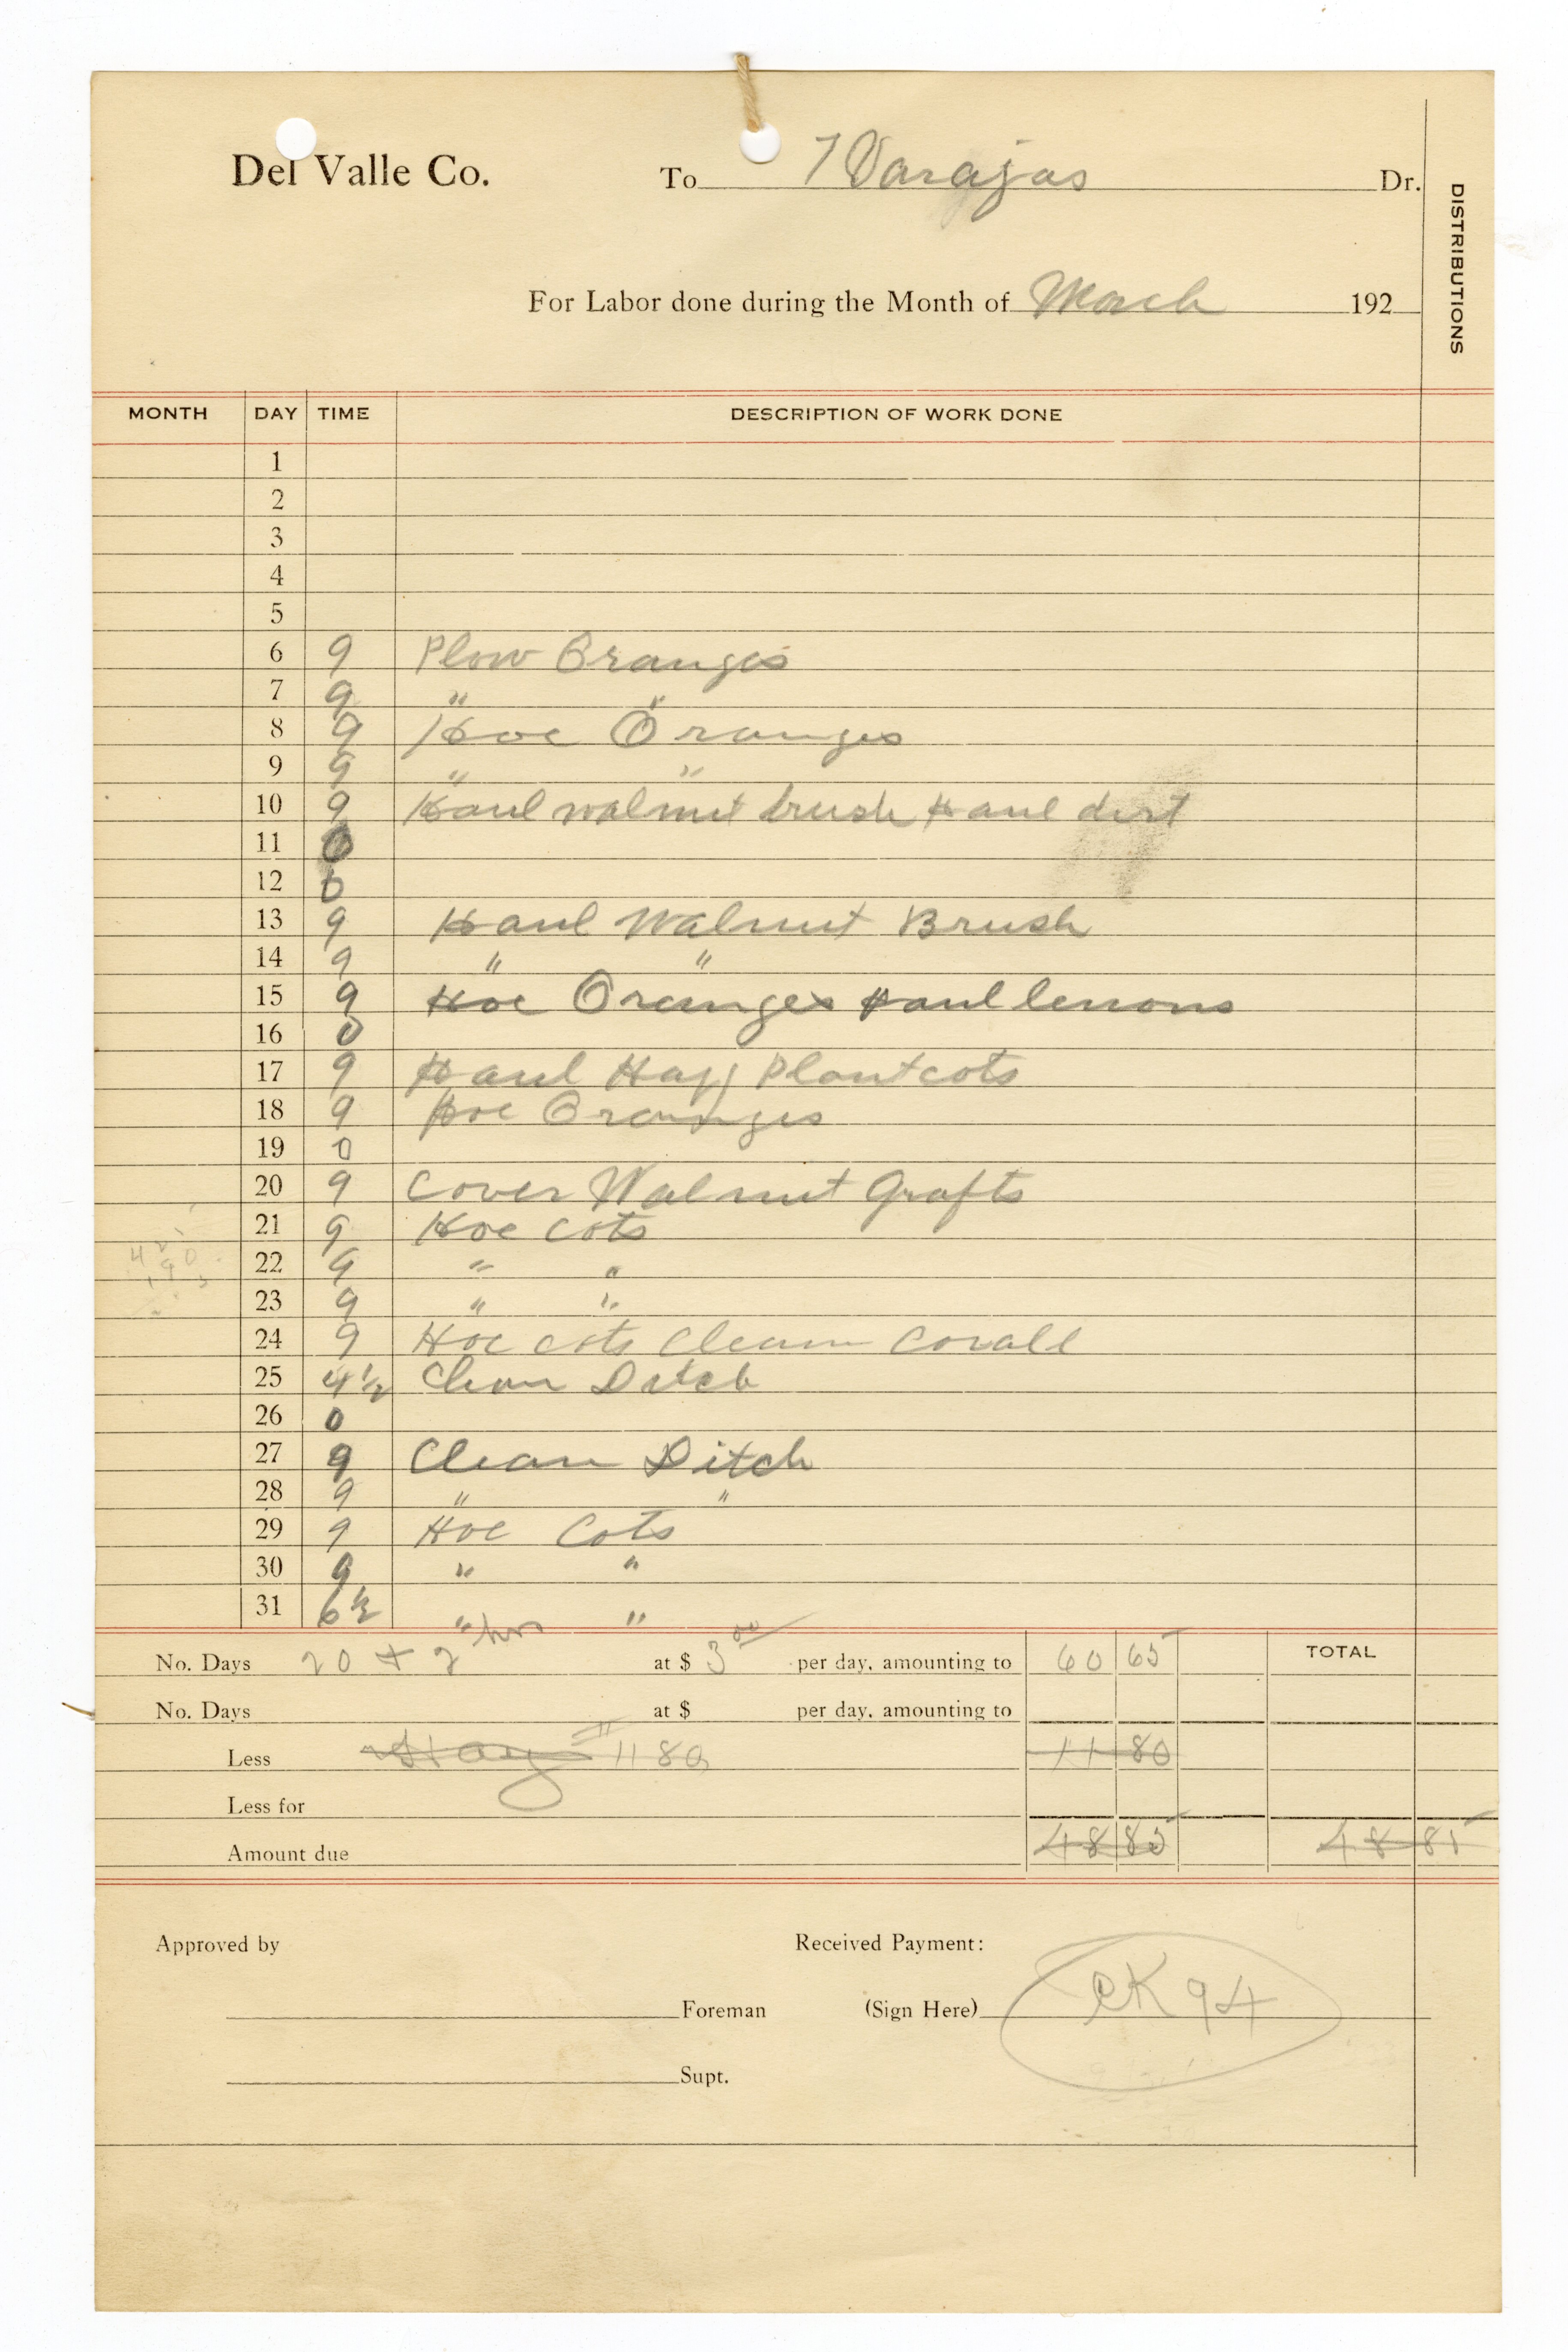 Del Valle Co. To 7 Varajas Dr.
DISTRIBUTIONS
For Labor done during the Month of March 192
MONTH DAY TIME DESCRIPTION OF WORK DONE
1
2
3
4
5
6 9 Plow Oranges
7 9 " "
8 9 Hoe Oranges
9 9 " "
10 9 Haul walnut brush Haul dirt
11 0
12 0
13 9 Haul Walnut Brush
14 9 " "
15 9 Hoe Oranges Haul lemons
16 0
17 9 Haul Hay Plant cots
18 9 Hoe Oranges
19 0
20 9 Cover Walnut Grafts
21 9 Hoe Cots
22 9 " "
23 9 " "
24 9 Hoe cots Clean Corall
25 4 1/2 Clean Ditch
26 0
27 9 Clean Ditch
28 9 " "
29 9 Hoe Cots
30 9 " "
31 6 1/2 " "
No. Days 20 + 2 hrs at $ 3 00 per day, amounting to 60 65 TOTAL
No. Days at $ per day, amounting to
Less Hay 11 80 11 80
Less for
Amount due 48 85 48 85
Approved by Received Payment:
Foreman (Sign Here) CK 94
Supt.